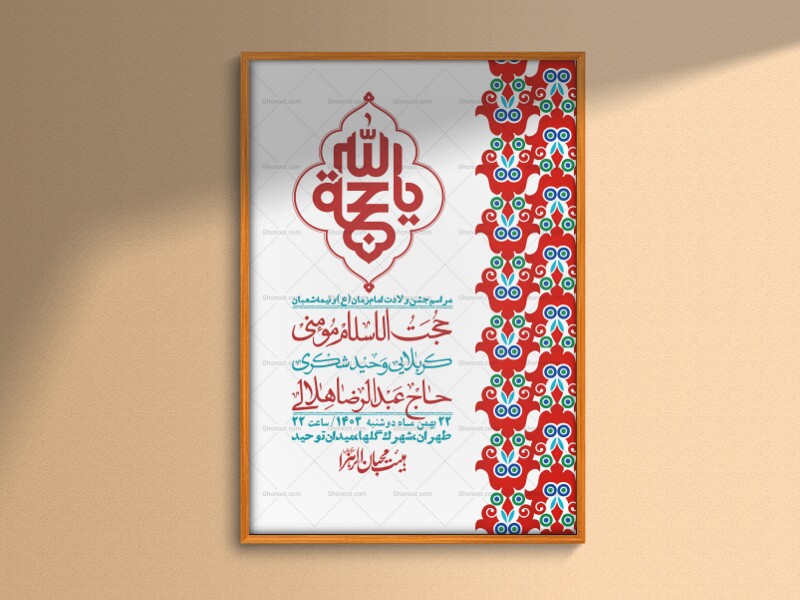 یا حجة الله
مراسم جشن ولادت امام زمان (ع) و نیمه شعبان
حجت الاسلام مؤمنی
کربلایی وحید شکری
حاج عبدالرضا هلالی
۲۲ بهمن ماه دوشنبه ۱۴۰۳ / ساعت ۲۲
طهران، شهرک گلها، میدان توحید
هیئت محبان الزهرا
Ghonoot.com